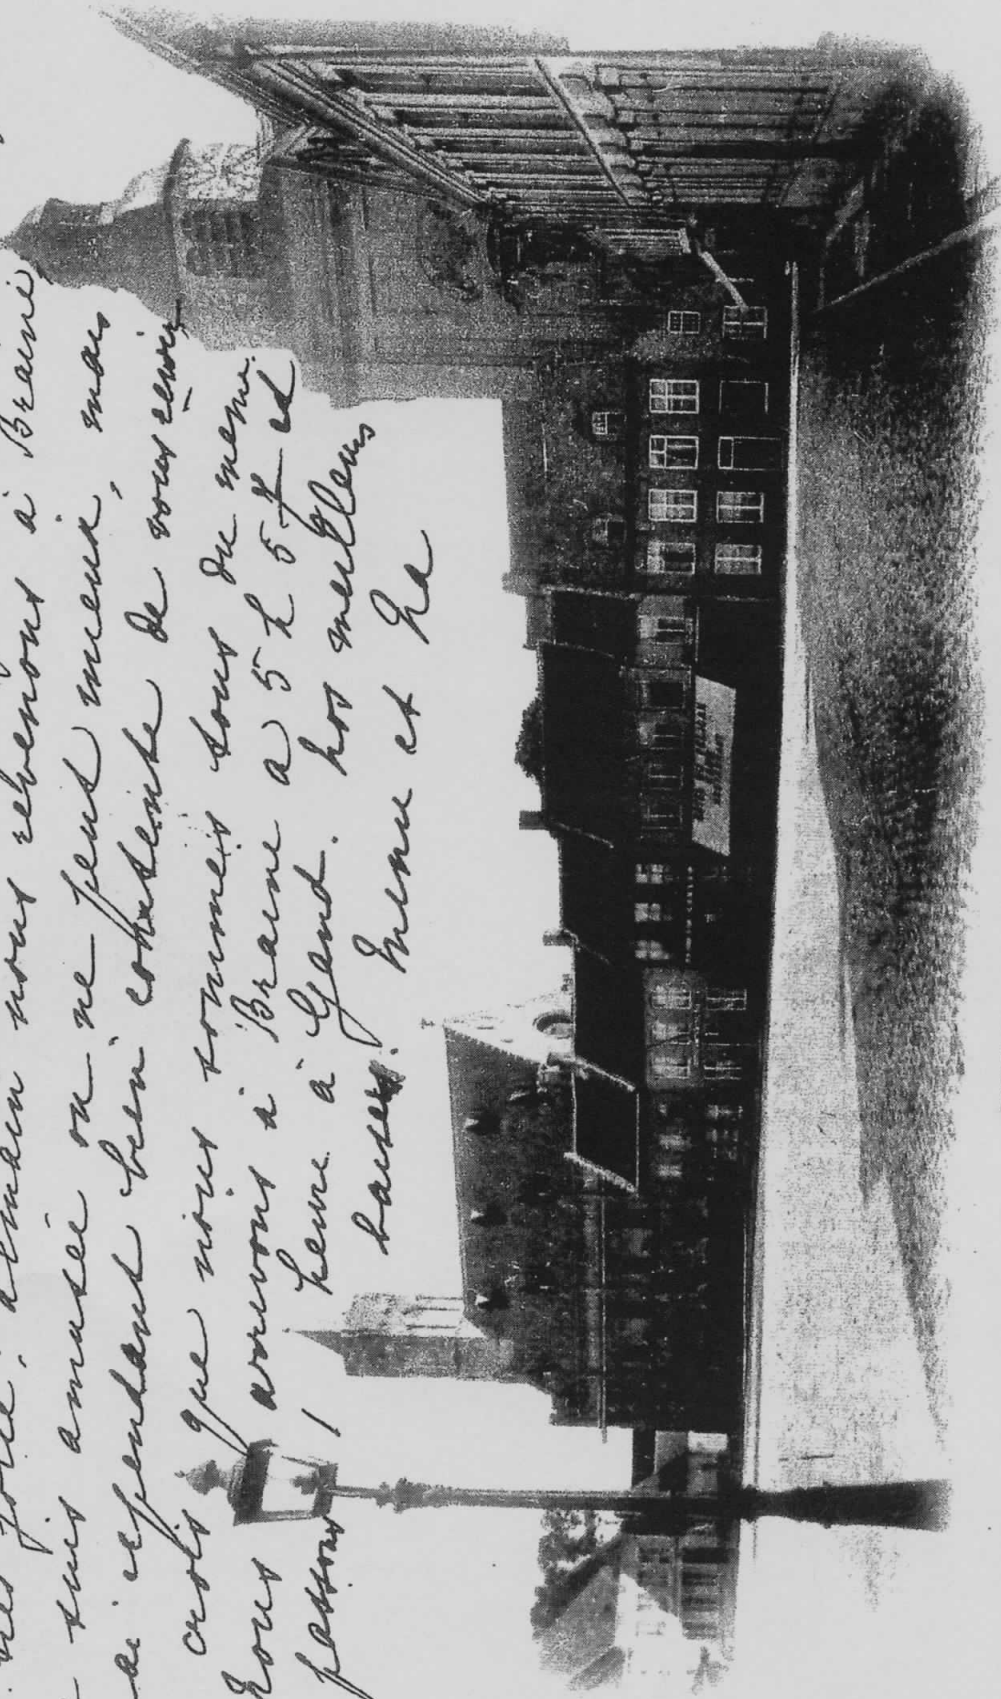 jolie. demain nous revenons à Braine
suis amusée on ne peut mieux, mais
ai cependant bien contente de vous revoir
crois que nous sommes tous du meme
Nous arrivons à Braine a 5 h 57 et
passons 1 heure à Gand. nos meilleurs
baisers. Menu et Na